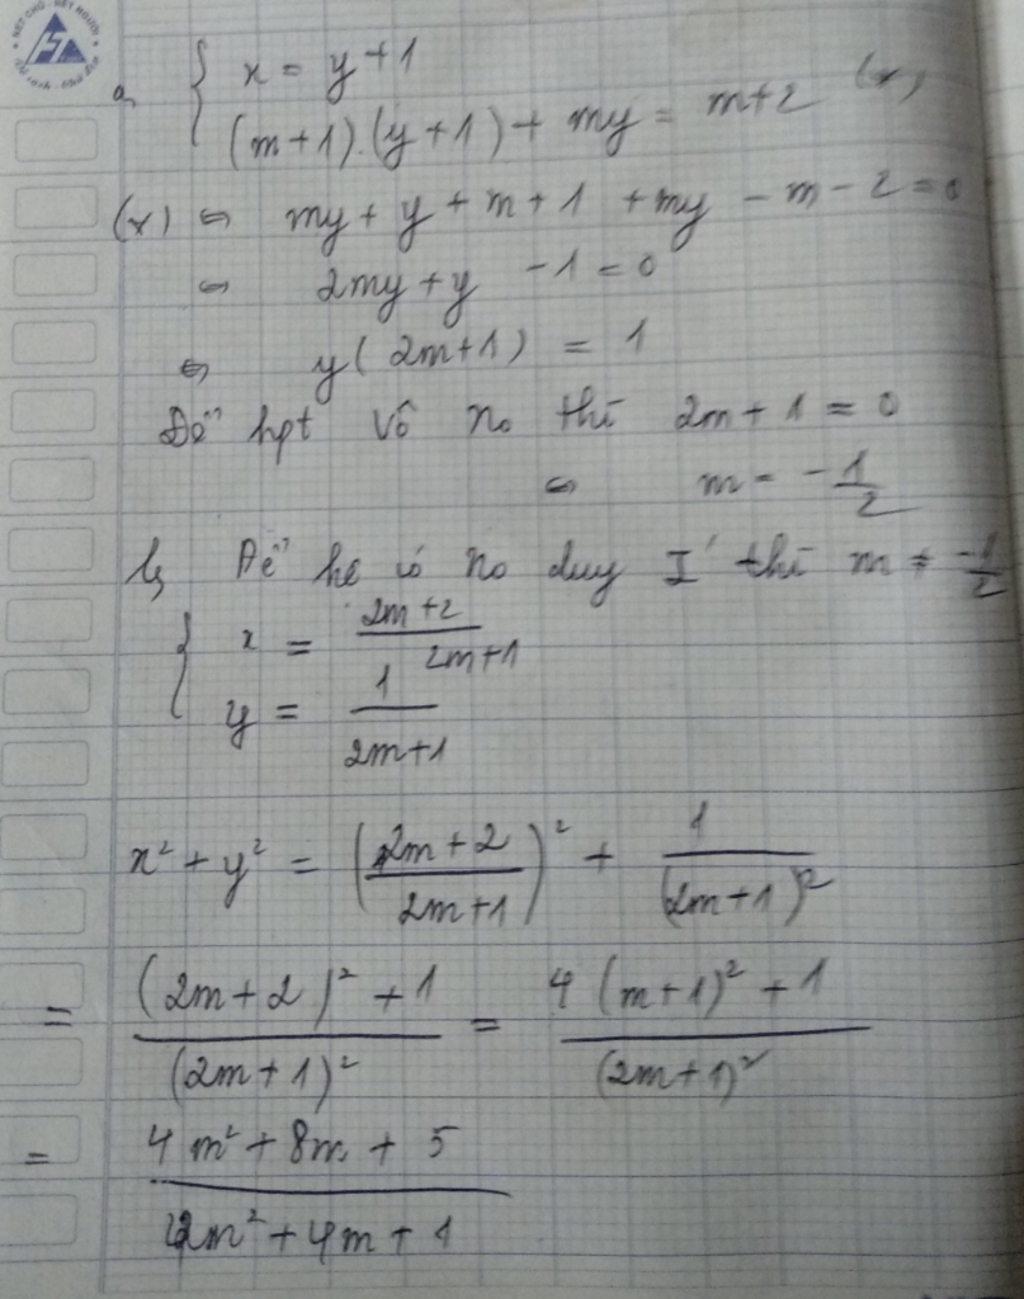 NÉT CHỮ - NẾT NGƯỜI
a, { x = y + 1
(m+1).(y+1) + my = m+2 (*)
(*) ⇔ my + y + m + 1 + my - m - 2 = 0
⇔ 2my + y - 1 = 0
⇔ y(2m+1) = 1
Để hpt vô no thì 2m + 1 = 0
⇔ m = -1/2
b, Để hệ có no duy I' thì m ≠ -1/2
{ x = (2m+2)/(2m+1)
y = 1/(2m+1)
x² + y² = ((2m+2)/(2m+1))² + 1/(2m+1)²
= ((2m+2)² + 1)/(2m+1)² = (4(m+1)² + 1)/(2m+1)²
= (4m² + 8m + 5)/(4m² + 4m + 1)